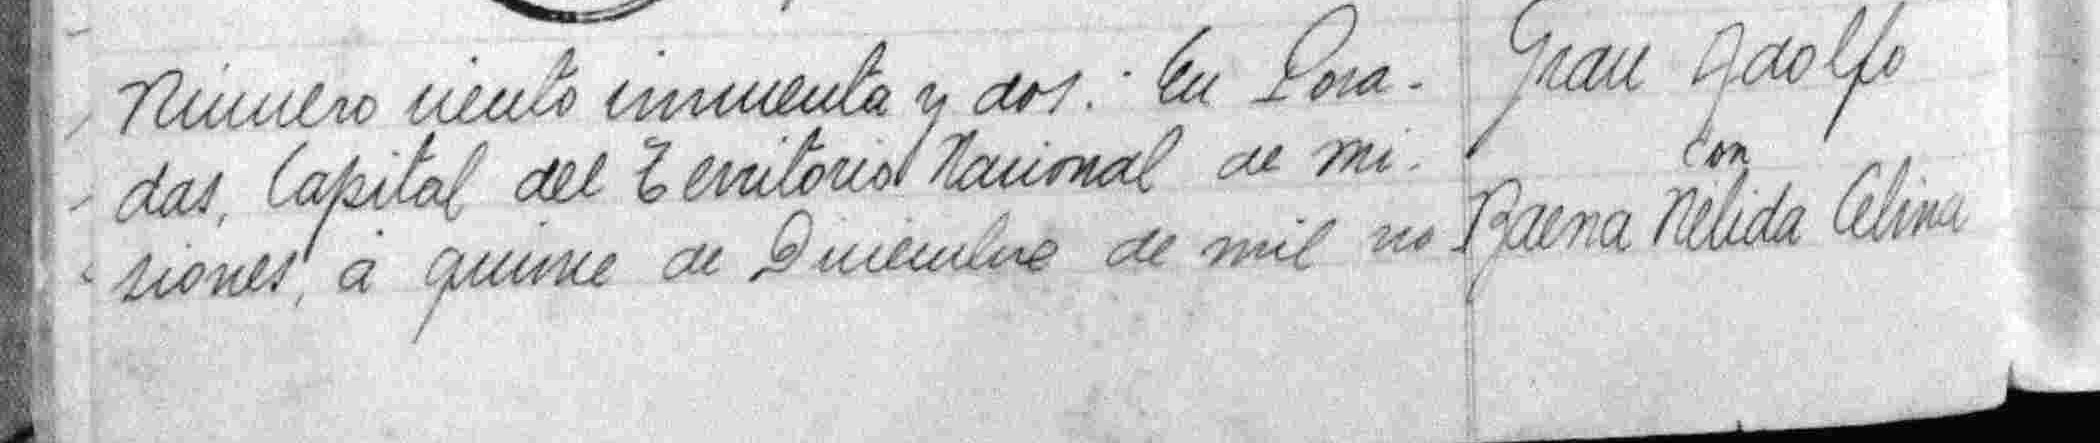 Número ciento cincuenta y dos. En Posa-
das, Capital del Territorio Nacional de Mi-
siones, á quince de Diciembre de mil no
Grau Adolfo
con
Baena Nélida Celina